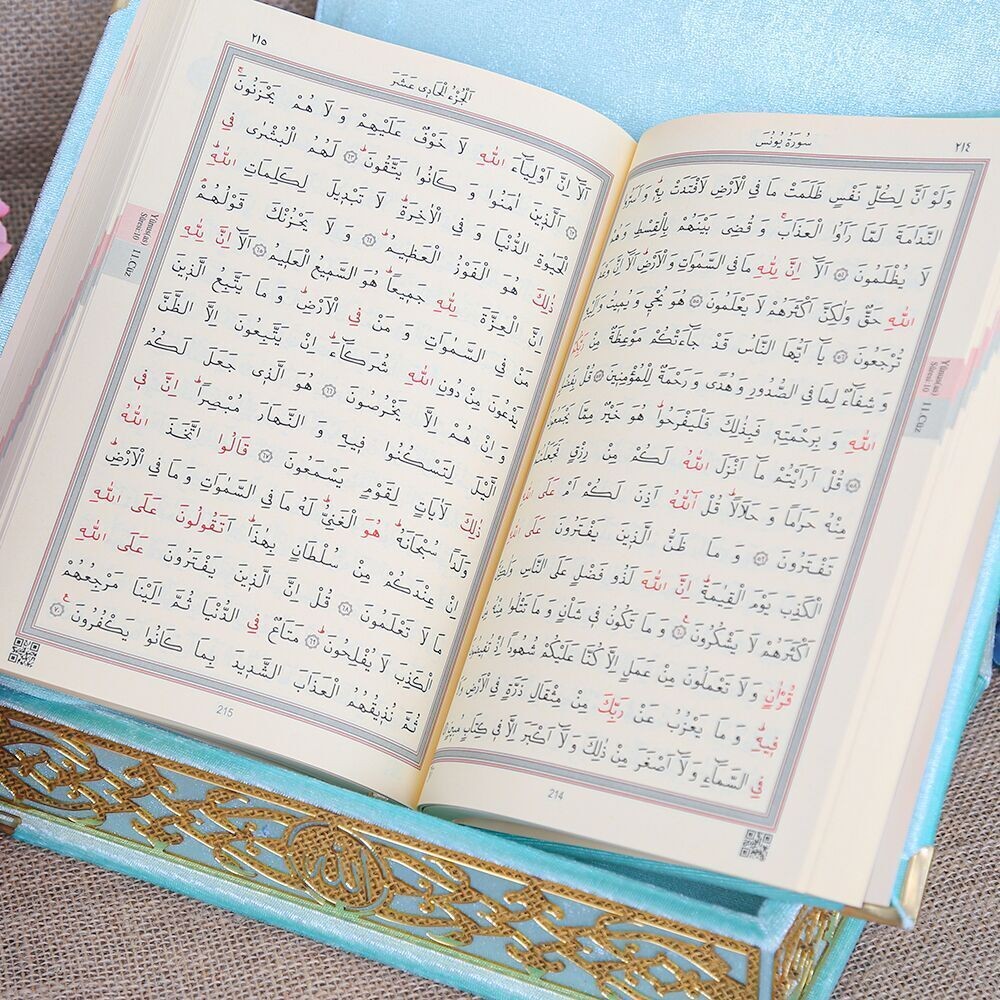 ٢١٤
سُورَةُ يُونُسَ
وَلَوْ اَنَّ لِكُلِّ نَفْسٍ ظَلَمَتْ مَا فِي الْاَرْضِ لَافْتَدَتْ بِهٖؕ
النَّدَامَةَ لَمَّا رَاَوُا الْعَذَابَۚ وَ قُضِيَ بَيْنَهُمْ بِالْقِسْطِ
لَا يُظْلَمُونَ ﴿٥٤﴾ اَلَٓا اِنَّ لِلّٰهِ مَا فِي السَّمٰوَاتِ وَالْاَرْضِؕ اَلَٓا اِنَّ
اللّٰهِ حَقٌّ وَلٰكِنَّ اَكْثَرَهُمْ لَا يَعْلَمُونَ ﴿٥٥﴾ هُوَ يُحْيٖ وَ يُمٖيتُ
تُرْجَعُونَ ﴿٥٦﴾ يَٓا اَيُّهَا النَّاسُ قَدْ جَٓاءَتْكُمْ مَوْعِظَةٌ مِنْ
وَ شِفَٓاءٌ لِمَا فِي الصُّدُورِ وَ هُدًى وَ رَحْمَةٌ لِلْمُؤْمِنٖينَ ﴿٥٧﴾ قُلْ
اللّٰهِ وَ بِرَحْمَتِهٖ فَبِذٰلِكَ فَلْيَفْرَحُواؕ هُوَ خَيْرٌ مِمَّا يَجْمَعُونَ
﴿٥٨﴾ قُلْ اَرَاَيْتُمْ مَٓا اَنْزَلَ اللّٰهُ لَكُمْ مِنْ رِزْقٍ فَجَعَلْتُمْ
مِنْهُ حَرَامًا وَ حَلَالًاؕ قُلْ آٰللّٰهُ اَذِنَ لَكُمْ اَمْ عَلَى اللّٰهِ
تَفْتَرُونَ ﴿٥٩﴾ وَ مَا ظَنُّ الَّذٖينَ يَفْتَرُونَ عَلَى اللّٰهِ
الْكَذِبَ يَوْمَ الْقِيٰمَةِؕ اِنَّ اللّٰهَ لَذُو فَضْلٍ عَلَى النَّاسِ
اَكْثَرَهُمْ لَا يَشْكُرُونَ ﴿٦٠﴾ وَ مَا تَكُونُ فٖي شَاْنٍ وَ مَا تَتْلُوا مِنْهُ
قُرْاٰنٍ وَ لَا تَعْمَلُونَ مِنْ عَمَلٍ اِلَّا كُنَّا عَلَيْكُمْ شُهُودًا اِذْ تُفٖيضُونَ
فٖيهِؕ وَ مَا يَعْزُبُ عَنْ رَبِّكَ مِنْ مِثْقَالِ ذَرَّةٍ فِي الْاَرْضِ
فِي السَّمَٓاءِ وَ لَٓا اَصْغَرَ مِنْ ذٰلِكَ وَ لَٓا اَكْبَرَ اِلَّا فٖي كِتَابٍ مُبٖينٍ
214
Yûnus(as)
Sûresi 10
11.Cüz
٢١٥
اَلْجُزْءُ الْحَادٖي عَشَرَ
اَلَٓا اِنَّ اَوْلِيَٓاءَ اللّٰهِ لَا خَوْفٌ عَلَيْهِمْ وَ لَا هُمْ يَحْزَنُونَۚ
﴿٦٢﴾ اَلَّذٖينَ اٰمَنُوا وَ كَانُوا يَتَّقُونَؕ ﴿٦٣﴾ لَهُمُ الْبُشْرٰى فِي
الْحَيٰوةِ الدُّنْيَا وَ فِي الْاٰخِرَةِؕ لَا تَبْدٖيلَ لِكَلِمَاتِ اللّٰهِؕ
ذٰلِكَ هُوَ الْفَوْزُ الْعَظٖيمُؕ ﴿٦٤﴾ وَ لَا يَحْزُنْكَ قَوْلُهُمْۘ
اِنَّ الْعِزَّةَ لِلّٰهِ جَمٖيعًاؕ هُوَ السَّمٖيعُ الْعَلٖيمُ ﴿٦٥﴾ اَلَٓا اِنَّ لِلّٰهِ
مَنْ فِي السَّمٰوَاتِ وَ مَنْ فِي الْاَرْضِؕ وَ مَا يَتَّبِعُ الَّذٖينَ
يَدْعُونَ مِنْ دُونِ اللّٰهِ شُرَكَٓاءَؕ اِنْ يَتَّبِعُونَ اِلَّا الظَّنَّ
وَ اِنْ هُمْ اِلَّا يَخْرُصُونَ ﴿٦٦﴾ هُوَ الَّذٖي جَعَلَ لَكُمُ
الَّيْلَ لِتَسْكُنُوا فٖيهِ وَ النَّهَارَ مُبْصِرًاؕ اِنَّ فٖي
ذٰلِكَ لَاٰيَاتٍ لِقَوْمٍ يَسْمَعُونَ ﴿٦٧﴾ قَالُوا اتَّخَذَ اللّٰهُ
وَلَدًا سُبْحَانَهُؕ هُوَ الْغَنِيُّؕ لَهُ مَا فِي السَّمٰوَاتِ وَ مَا فِي الْاَرْضِؕ
اِنْ عِنْدَكُمْ مِنْ سُلْطَانٍ بِهٰذَاؕ اَتَقُولُونَ عَلَى اللّٰهِ
مَا لَا تَعْلَمُونَ ﴿٦٨﴾ قُلْ اِنَّ الَّذٖينَ يَفْتَرُونَ عَلَى اللّٰهِ
الْكَذِبَ لَا يُفْلِحُونَؕ ﴿٦٩﴾ مَتَاعٌ فِي الدُّنْيَا ثُمَّ اِلَيْنَا مَرْجِعُهُمْ
ثُمَّ نُذٖيقُهُمُ الْعَذَابَ الشَّدٖيدَ بِمَا كَانُوا يَكْفُرُونَ ﴿٧٠﴾
215
Yûnus(as)
Sûresi 10
11.Cüz
الله